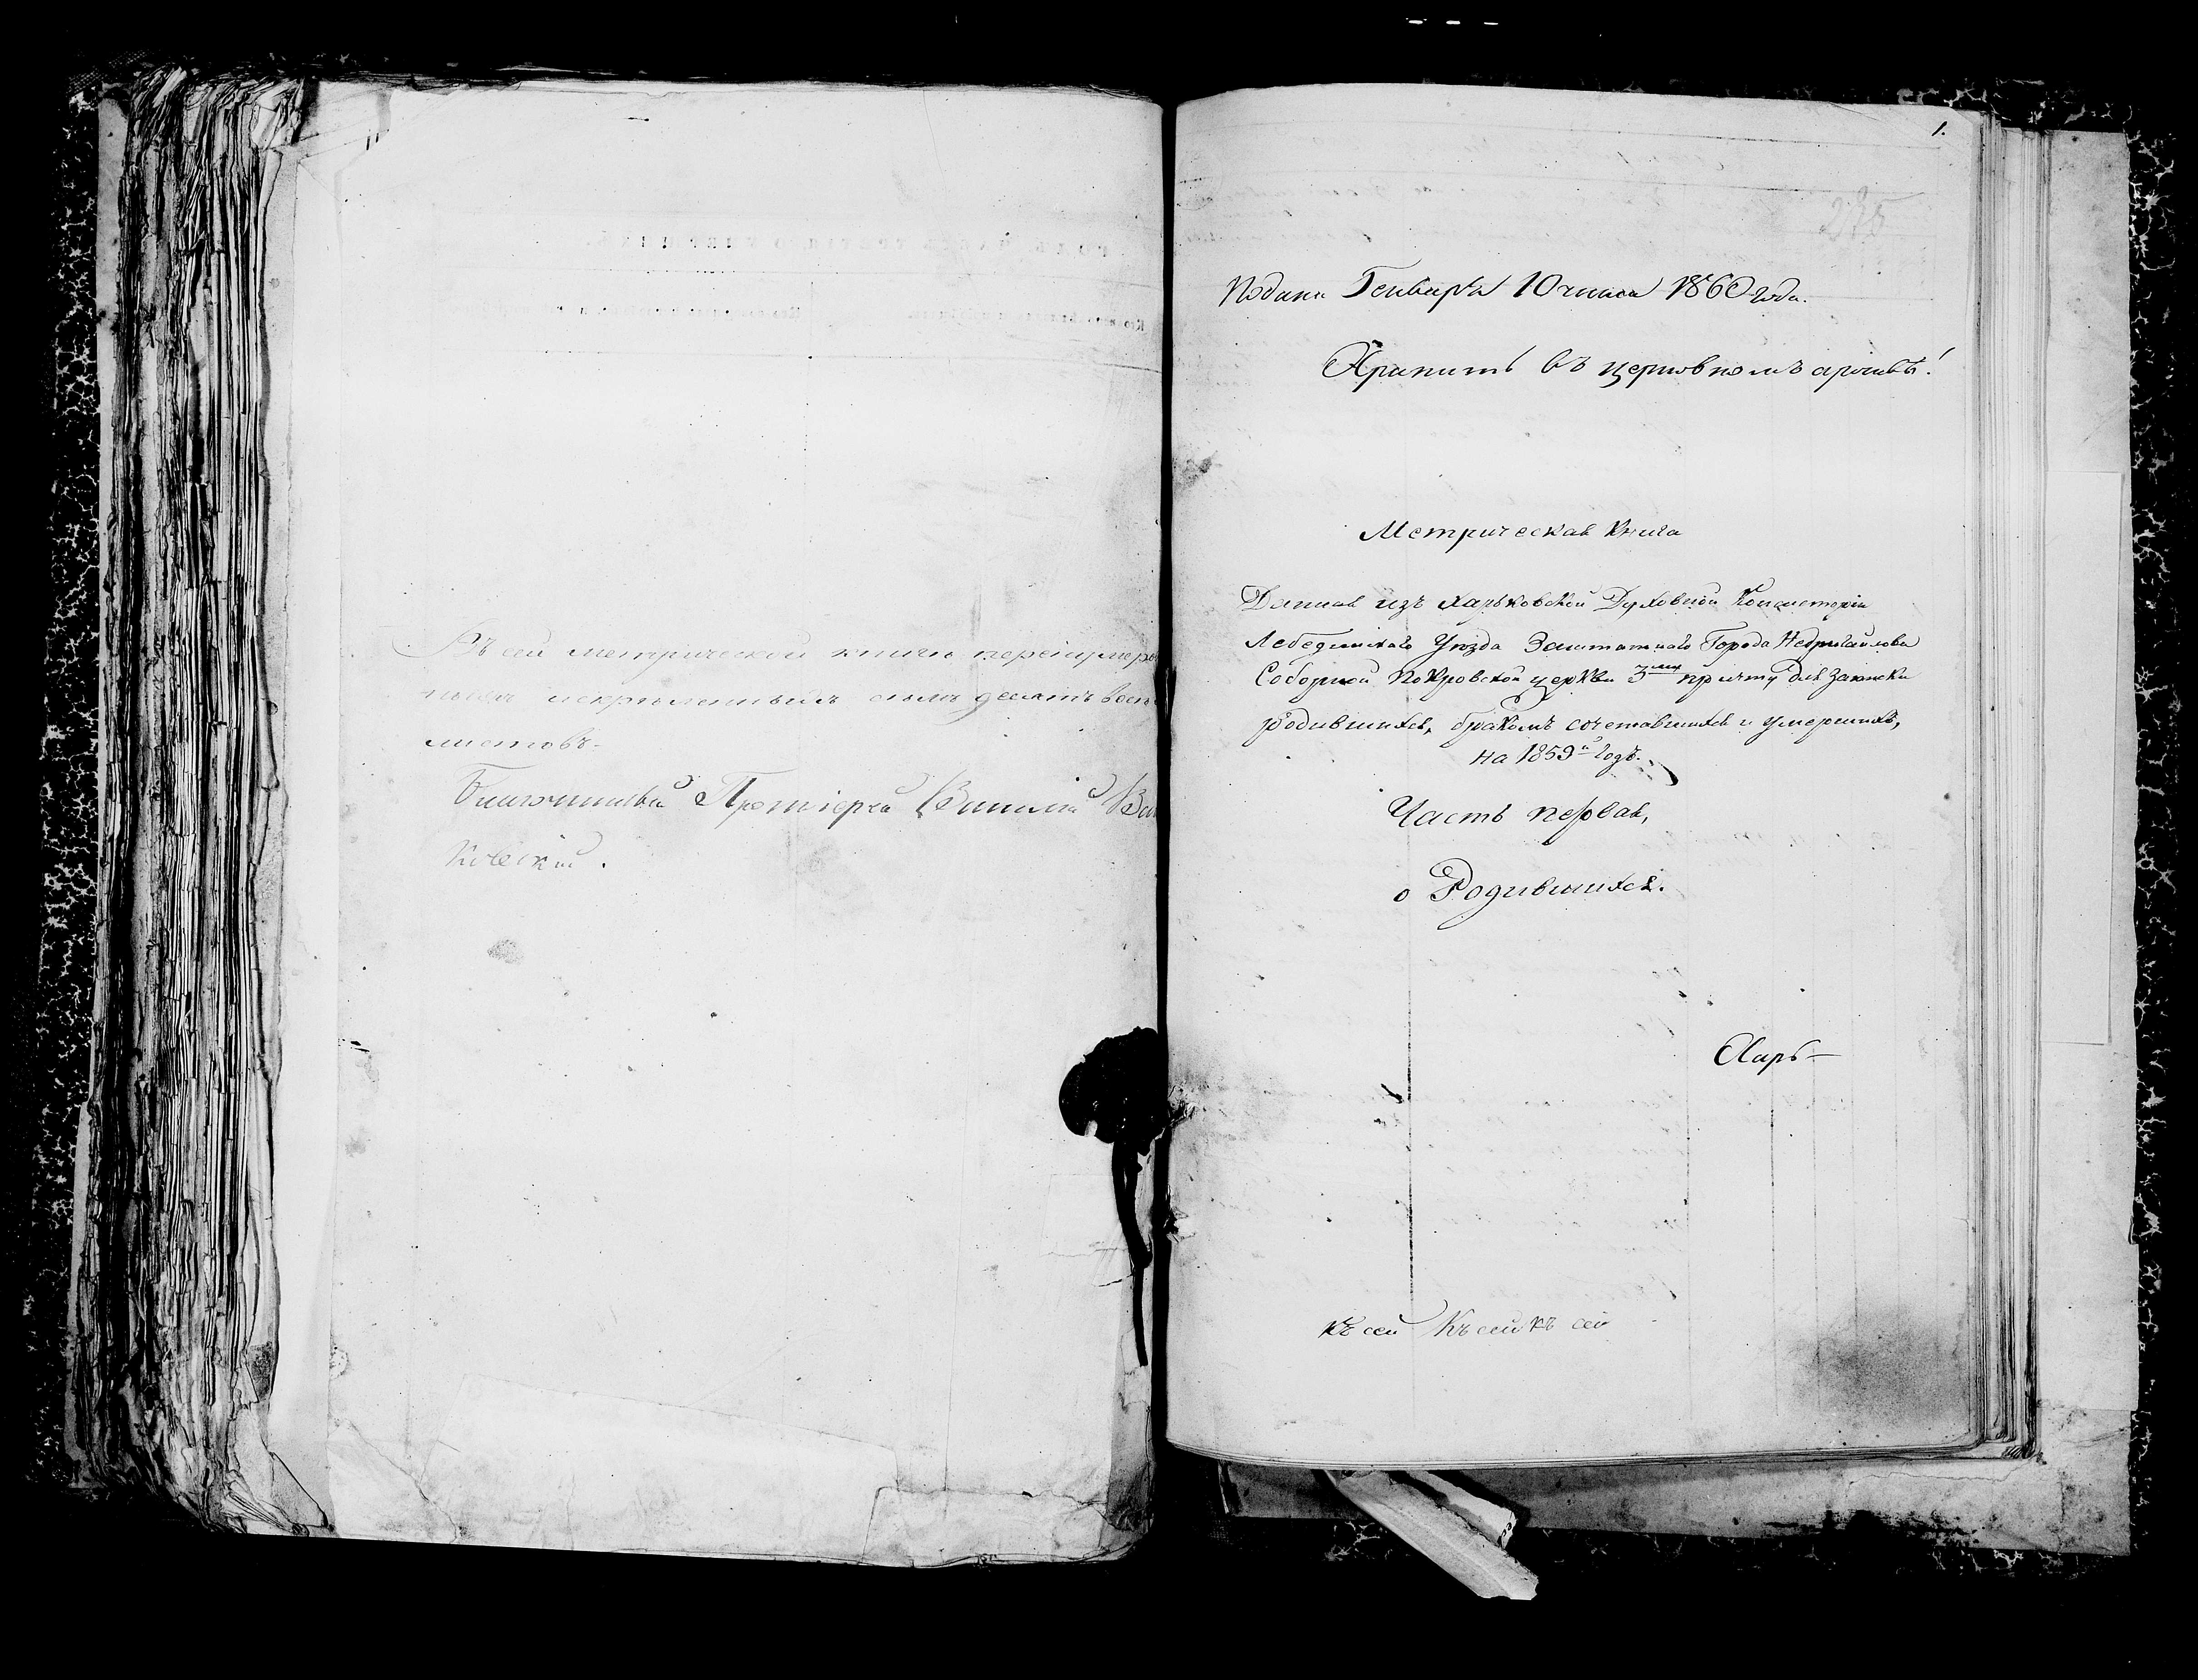 Въ сей метрической книги перенумеро
листовъ
Благочинный Протоіерей Василій
ковскій.
1.
275
Подана Генваря 10 числа 1860 года.
Хранить въ церковномъ архивѣ!
Метрическая Книга
Данная изъ Харьковской Духовной Консисторіи
Лебединскаго Уѣзда Заштатнаго Города Недригайлова
Соборной Покровской церкви 3му причту для записки
родившихся, бракомъ сочетавшихся и умершихъ,
на 1859й годъ.
Часть первая,
о Родившихся.
Харь—
къ сей Къ сей къ сей